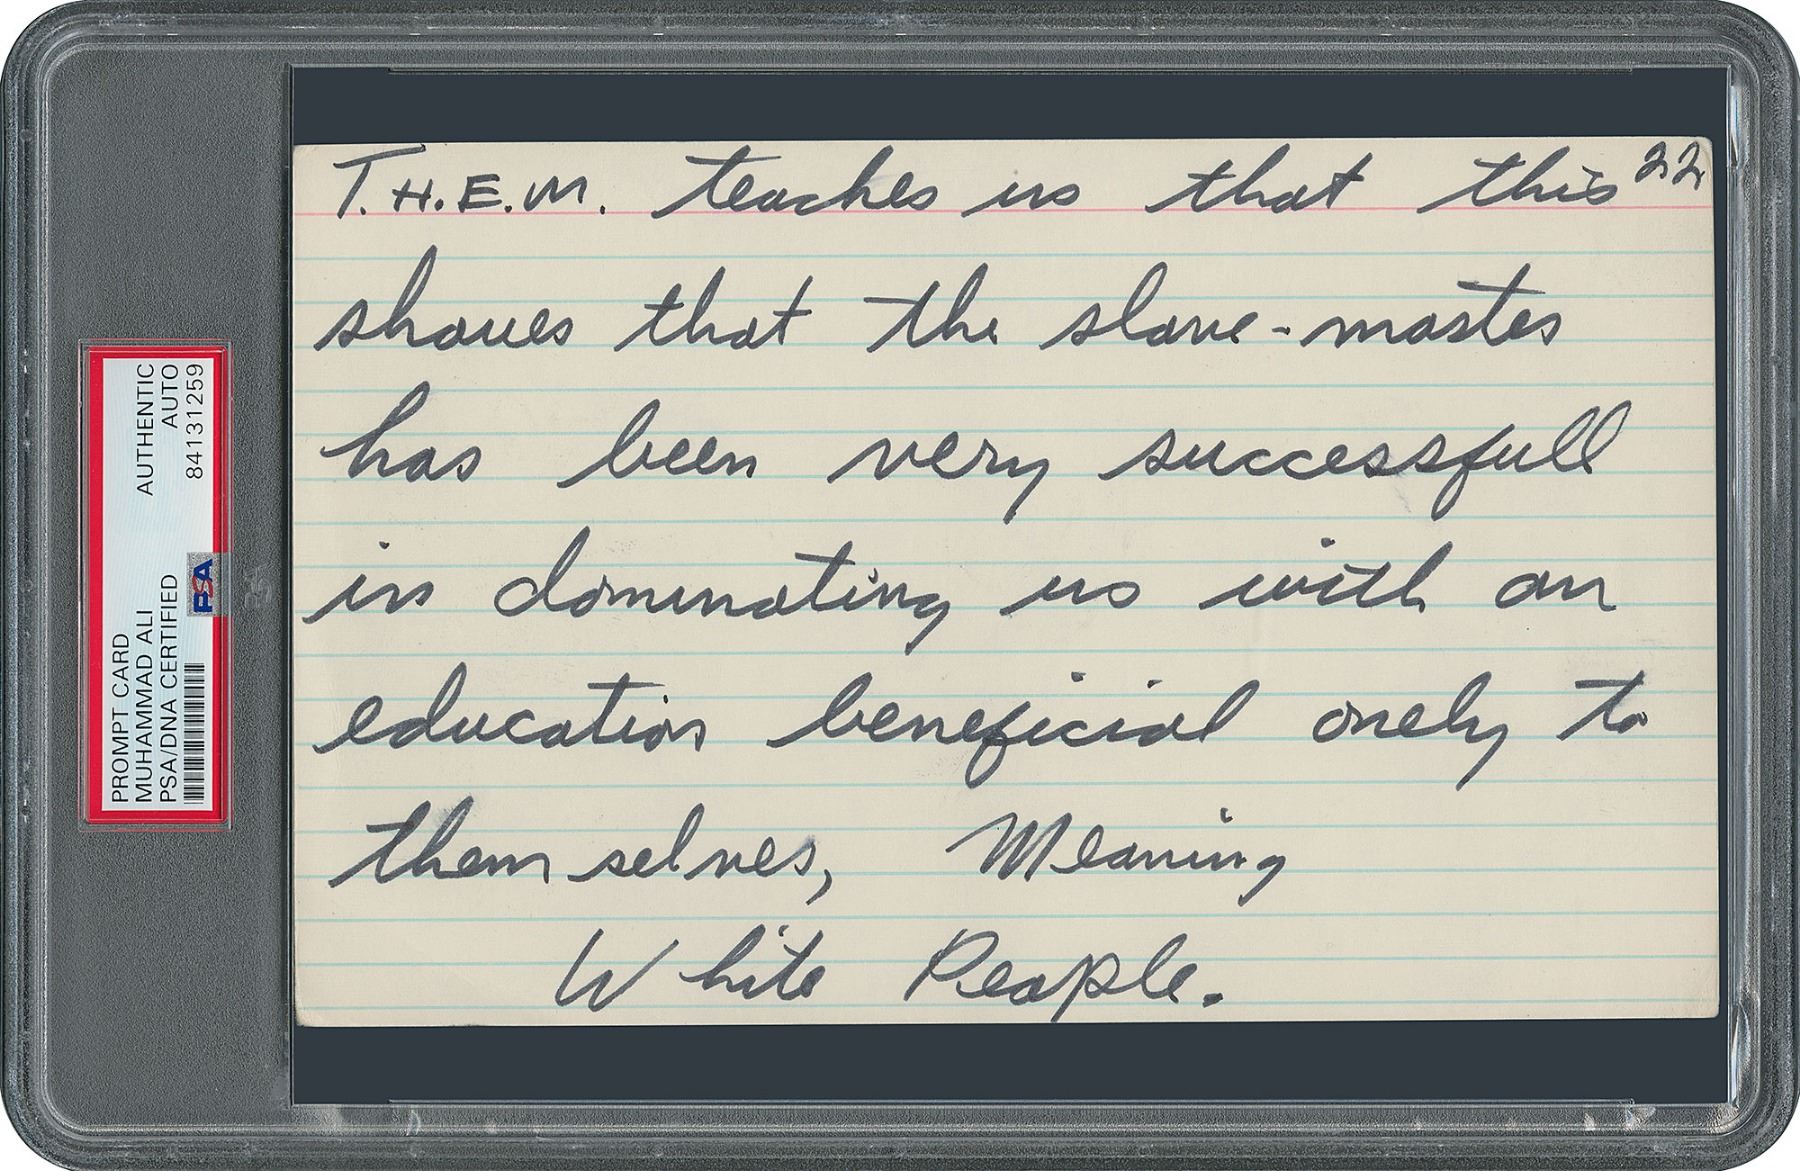 T.H.E.M. teaches us that this 22
shoues that the slave-master
has been very successfull
in dominating us with an
education beneficial onely to
them selves, Meaning
White People.
PROMPT CARD
MUHAMMAD ALI
PSA/DNA CERTIFIED
AUTHENTIC
AUTO
84131259
PSA